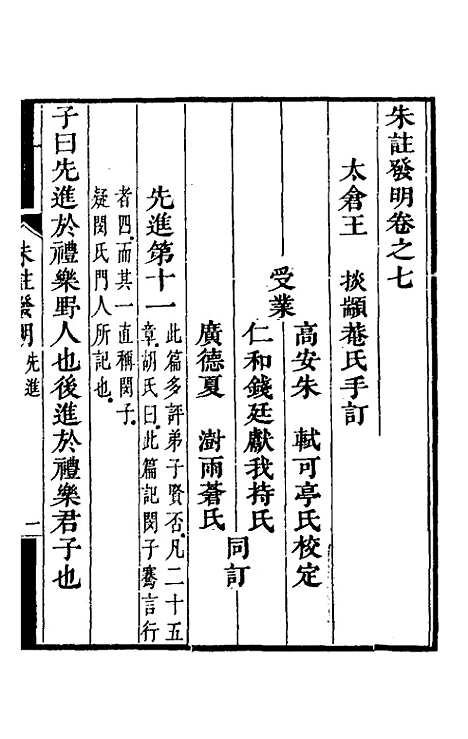 朱註發明卷之七
太倉王　掞顓菴氏手訂
受業
高安朱　軾可亭氏校定
仁和錢廷獻我持氏
廣德夏　澍雨蒼氏
同訂
先進第十一
此篇多評弟子賢否凡二十五
章胡氏曰此篇記閔子騫言行
者四而其一直稱閔子
疑閔氏門人所記也
子曰先進於禮樂野人也後進於禮樂君子也
朱註發明
先進
一